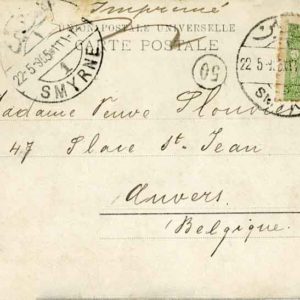 Imprimé
UNION POSTALE UNIVERSELLE
CARTE POSTALE
22-5
1
SMYRNE
50
22 5
Madame Veuve
47 Place St Jean
Anvers
Belgique.